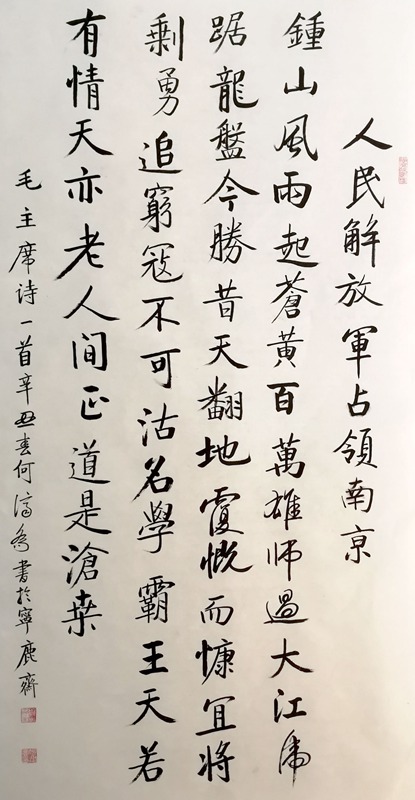 人民解放軍占領南京
鍾山風雨起蒼黃百萬雄师過大江虎
踞龍盤今勝昔天翻地覆慨而慷宜將
剩勇追窮寇不可沽名學霸王天若
有情天亦老人間正道是滄桑
毛主席诗一首辛丑春何書於寧鹿齋